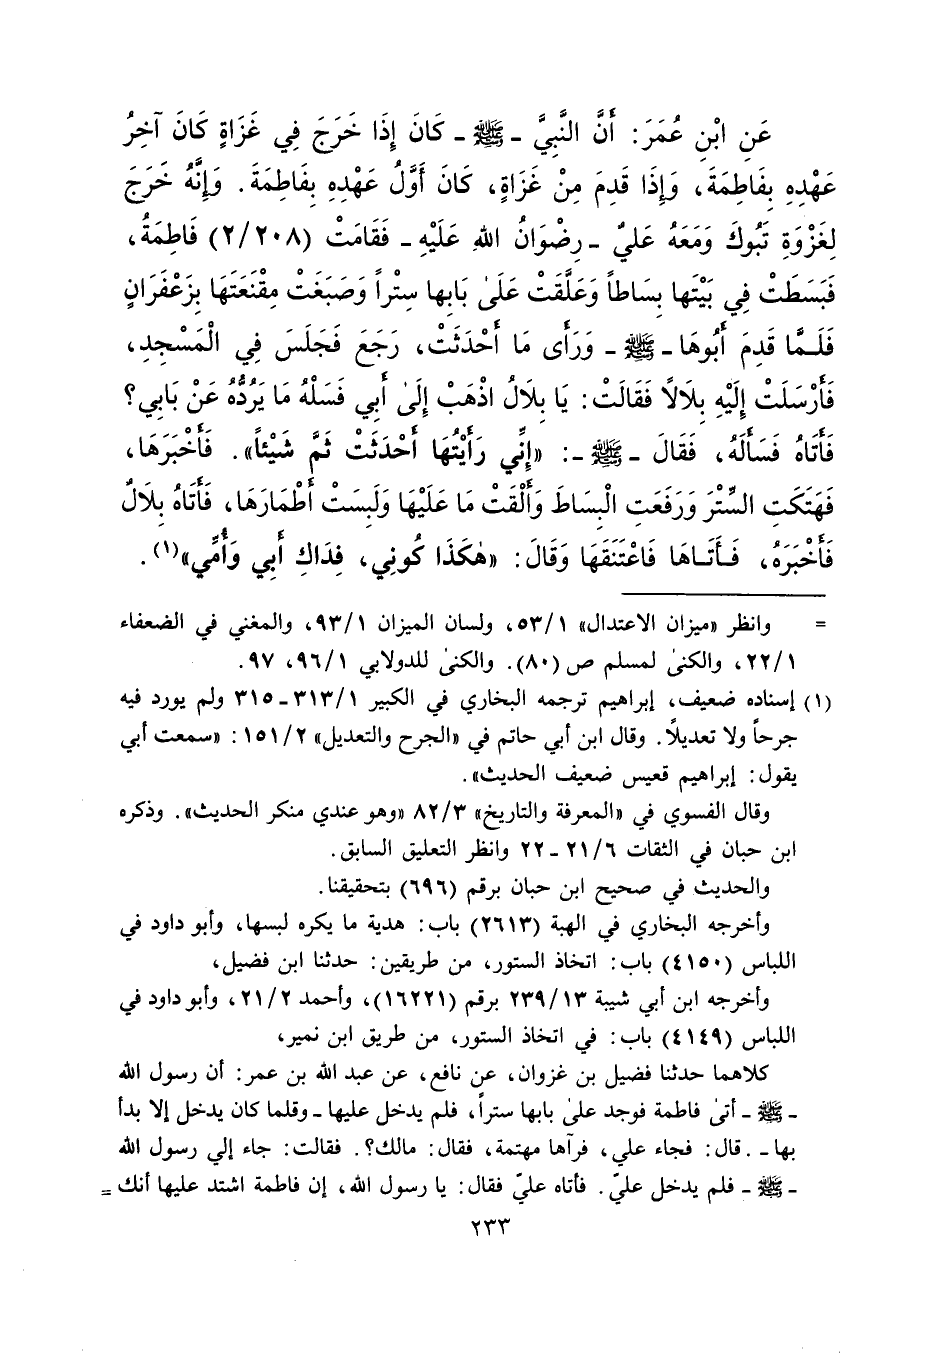 عَنِ ابْنِ عُمَرَ: أَنَّ النَّبِيَّ ـ ﷺ ـ كَانَ إِذَا خَرَجَ فِي غَزَاةٍ كَانَ آخِرُ
عَهْدِهِ بِفَاطِمَةَ، وَإِذَا قَدِمَ مِنْ غَزَاةٍ، كَانَ أَوَّلُ عَهْدِهِ بِفَاطِمَةَ. وَإِنَّهُ خَرَجَ
لِغَزْوَةِ تَبُوكَ وَمَعَهُ عَلِيٌّ ـ رِضْوَانُ اللهِ عَلَيْهِ ـ فَقَامَتْ (٢/٢٠٨) فَاطِمَةُ،
فَبَسَطَتْ فِي بَيْتِهَا بِسَاطاً وَعَلَّقَتْ عَلَىٰ بَابِها سِتْراً وَصَبَغَتْ مِقْنَعَتَهَا بِزَعْفَرَانٍ
فَلَمَّا قَدِمَ أَبُوهَا ـ ﷺ ـ وَرَأَى مَا أَحْدَثَتْ، رَجَعَ فَجَلَسَ فِي الْمَسْجِدِ،
فَأَرْسَلَتْ إِلَيْهِ بِلَالاً فَقَالَتْ: يَا بِلَالُ اذْهَبْ إِلَىٰ أَبِي فَسَلْهُ مَا يَرُدُّهُ عَنْ بَابِي؟
فَأَتَاهُ فَسَأَلَهُ، فَقَالَ ـ ﷺ ـ: «إِنِّي رَأَيْتُهَا أَحْدَثَتْ ثَمَّ شَيْئاً». فَأَخْبَرَهَا،
فَهَتَكَتِ السِّتْرَ وَرَفَعَتِ الْبِسَاطَ وَأَلْقَتْ مَا عَلَيْهَا وَلَبِسَتْ أَطْمَارَهَا، فَأَتَاهُ بِلَالٌ
فَأَخْبَرَهُ، فَأَتَاهَا فَاعْتَنَقَهَا وَقَالَ: «هٰكَذَا كُونِي، فِدَاكِ أَبِي وَأُمِّي»(١).
= وانظر «ميزان الاعتدال» ٥٣/١، ولسان الميزان ٩٣/١، والمغني في الضعفاء
٢٢/١، والكنىٰ لمسلم ص (٨٠). والكنىٰ للدولابي ٩٦/١، ٩٧.
(١) إسناده ضعيف، إبراهيم ترجمه البخاري في الكبير ٣١٣/١ـ٣١٥ ولم يورد فيه
جرحاً ولا تعديلاً. وقال ابن أبي حاتم في «الجرح والتعديل» ١٥١/٢: «سمعت أبي
يقول: إبراهيم قعيس ضعيف الحديث».
وقال الفسوي في «المعرفة والتاريخ» ٨٢/٣ «وهو عندي منكر الحديث». وذكره
ابن حبان في الثقات ٢١/٦ ـ ٢٢ وانظر التعليق السابق.
والحديث في صحيح ابن حبان برقم (٦٩٦) بتحقيقنا.
وأخرجه البخاري في الهبة (٢٦١٣) باب: هدية ما يكره لبسها، وأبو داود في
اللباس (٤١٥٠) باب: اتخاذ الستور، من طريقين: حدثنا ابن فضيل،
وأخرجه ابن أبي شيبة ٢٣٩/١٣ برقم (١٦٢٢١)، وأحمد ٢١/٢، وأبو داود في
اللباس (٤١٤٩) باب: في اتخاذ الستور، من طريق ابن نمير،
كلاهما حدثنا فضيل بن غزوان، عن نافع، عن عبد الله بن عمر: أن رسول الله
ـ ﷺ ـ أتىٰ فاطمة فوجد علىٰ بابها ستراً، فلم يدخل عليها ـ وقلما كان يدخل إلا بدأ
بها ـ. قال: فجاء علي، فرآها مهتمة، فقال: مالك؟. فقالت: جاء إلي رسول الله
ـ ﷺ ـ فلم يدخل عليّ. فأتاه عليّ فقال: يا رسول الله، إن فاطمة اشتد عليها أنك =
٢٣٣